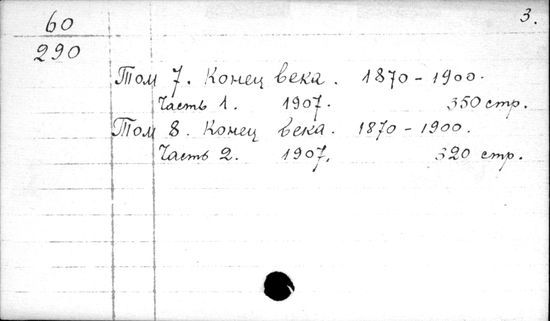 3.
60
290
Том 7. Конец века. 1870-1900.
Часть 1. 1907. 350 стр.
Том 8. Конец века. 1870-1900.
Часть 2. 1907. 320 стр.